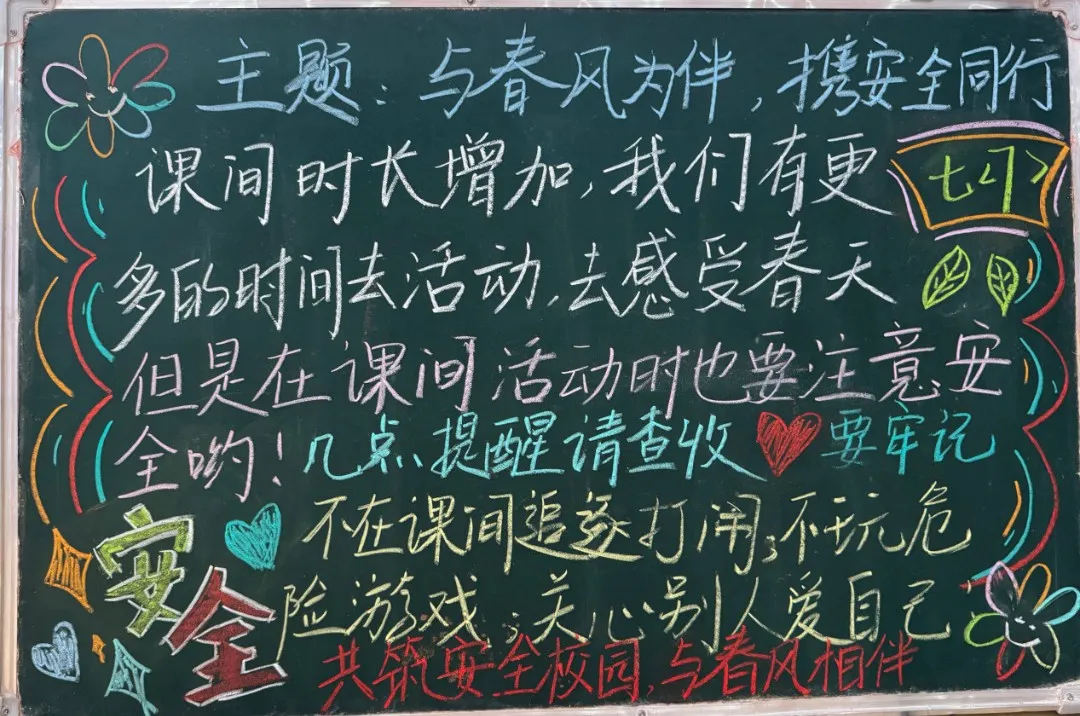 主题：与春风为伴，携安全同行
课间时长增加，我们有更
七(7)
多的时间去活动，去感受春天
但是在课间活动时也要注意安
全哟！几点提醒请查收 要牢记
不在课间追逐打闹；不玩危
险游戏；关心别人爱自己
安全
共筑安全校园，与春风相伴